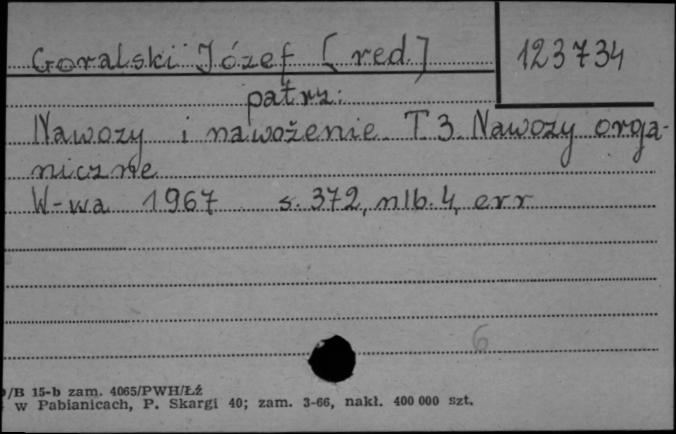 Goralski Józef [red.]
123734
patrz:
Nawozy i nawożenie T 3. Nawozy orga-
niczne
W-wa 1967 s. 372, nlb. 4, err
6
/B 15-b zam. 4065/PWH/Łź
w Pabianicach, P. Skargi 40; zam. 3-66, nakł. 400 000 szt.